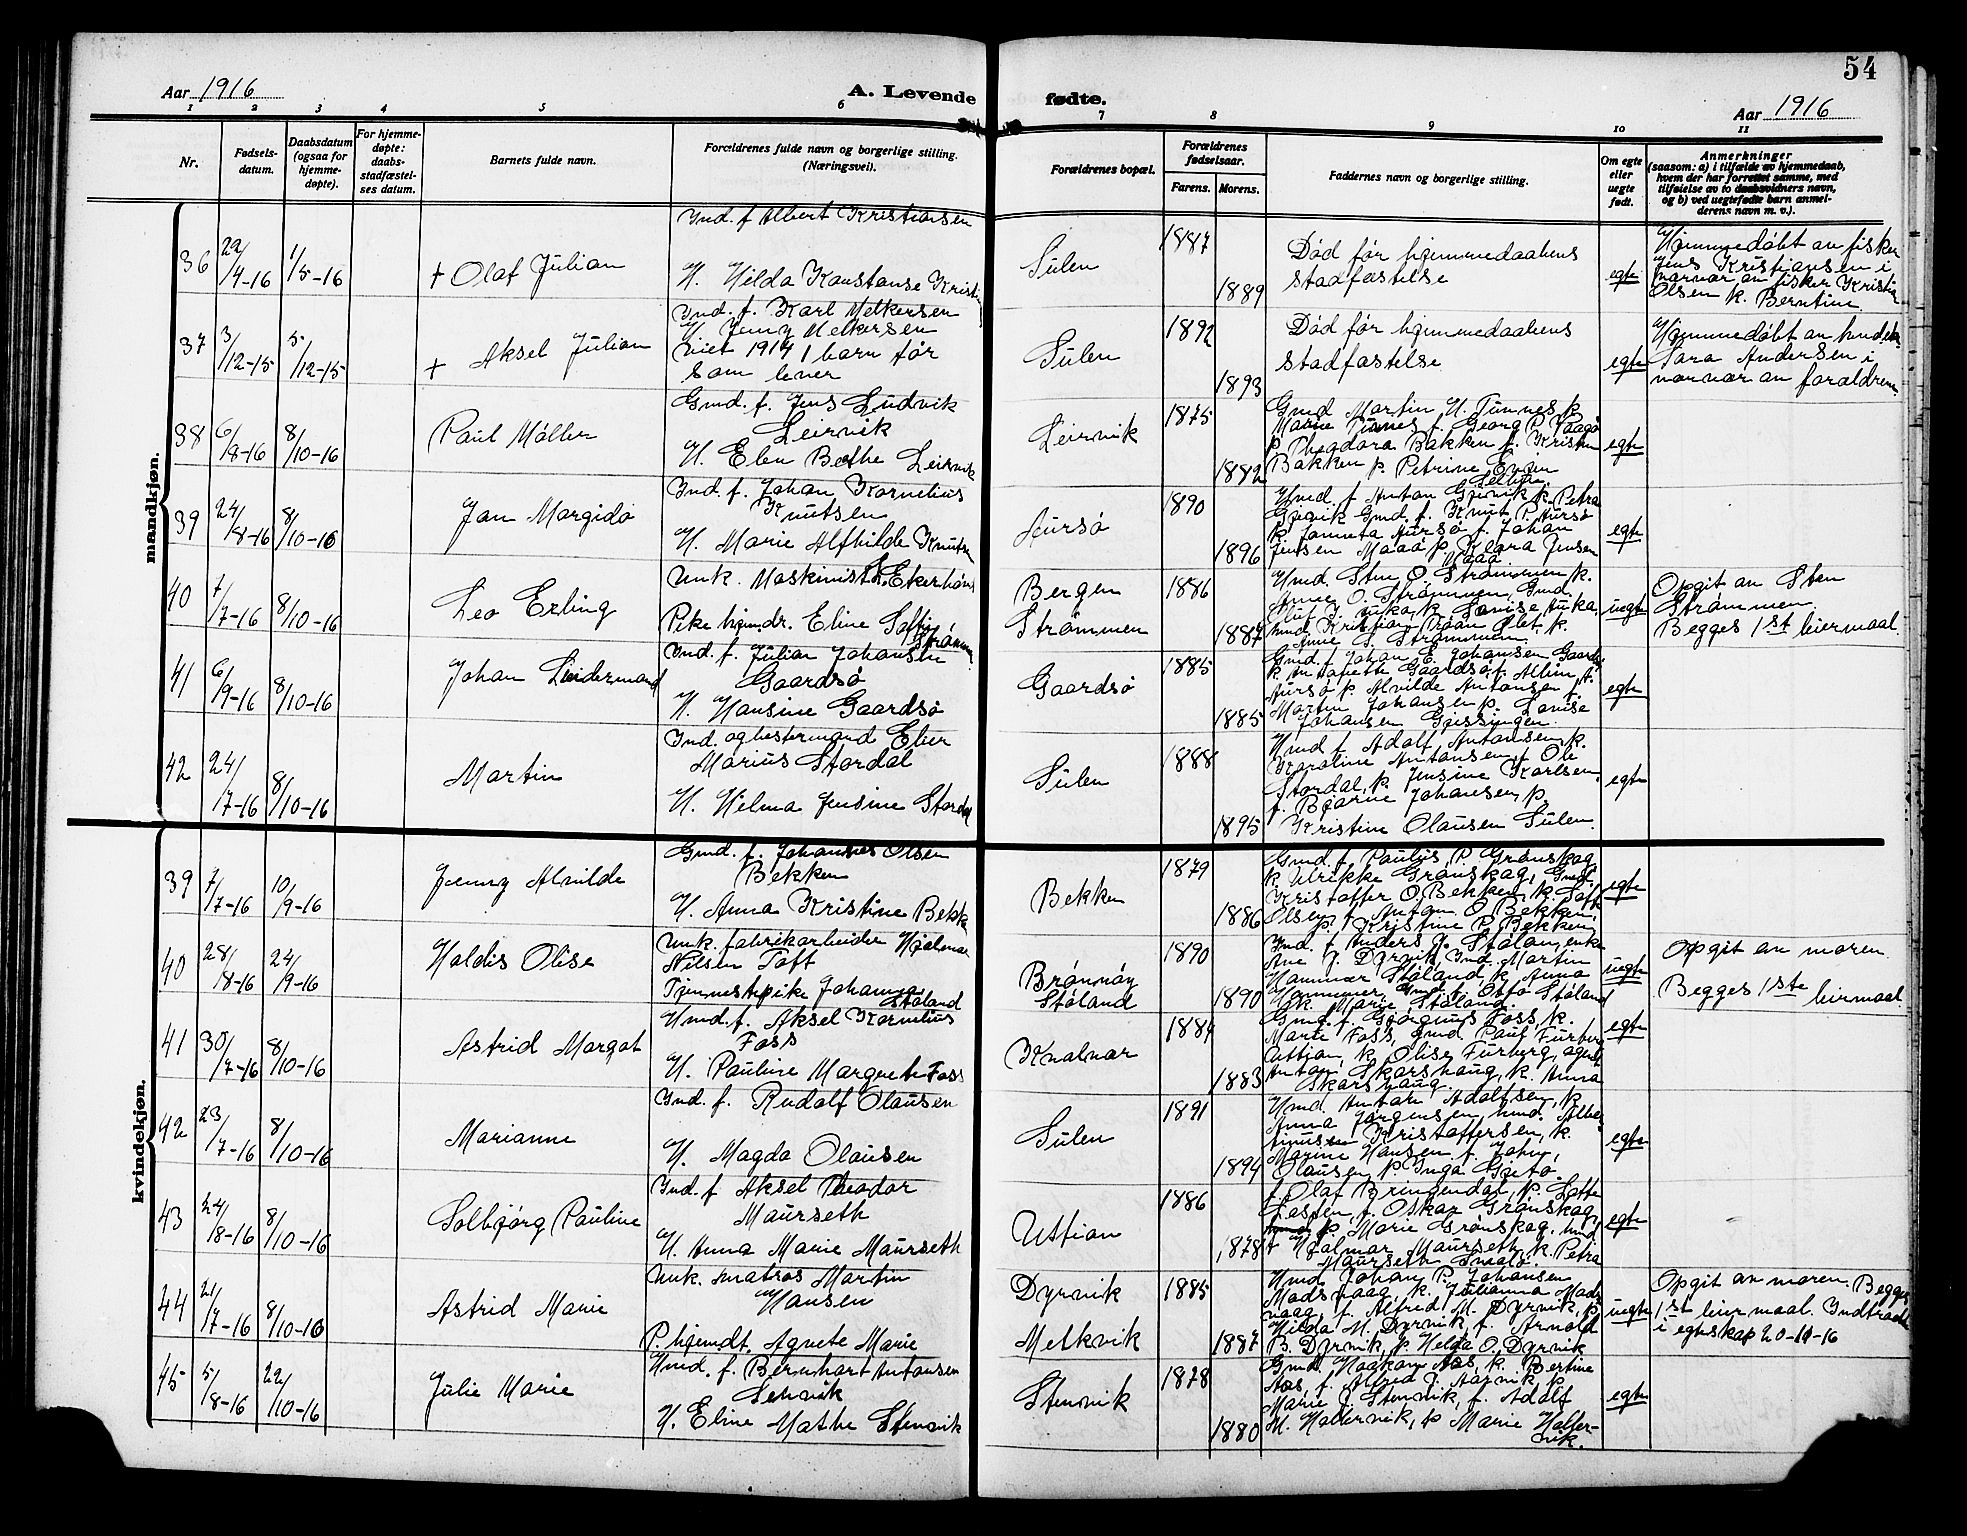 54
Aar 1916
A. Levende fødte.
Aar 1916
1 2 3 4 5 6 7 8 9 10 11
Nr.
Fødsels-
datum.
Daabsdatum
(ogsaa for
hjemme-
døpte).
For hjemme-
døpte:
daabs-
stadfæstel-
ses datum.
Barnets fulde navn.
Forældrenes fulde navn og borgerlige stilling.
(Næringsvei).
Forældrenes bopæl.
Forældrenes
fødselsaar.
Farens. Morens.
Faddernes navn og borgerlige stilling.
Om egte
eller
uegte
født.
Anmerkninger
(saasom: a) i tilfælde av hjemmedaab,
hvem der har forrettet samme, med
tilføielse av to daabsvidners navn,
og b) ved uegtefødte barn anmel-
derens navn m. v.).
mandkjøn.
36 29/4-16 1/5-16 + Olaf Julian
Ind. f. Albert Kristiansen
H. Hilda Konstanse Kristi
Sulen 1887 1889
Død før hjemmedaabens
stadfæstelse
egte
Hjemmedøbt av fisker
Jens Kristiansen i
nærvær av fisker Kristian
Olsen k. Berntine
37 3/12-15 5/12-15 + Aksel Julian
Ind. f. Karl Melkersen
H. Jenny Melkersen
Viet 1914 1 barn før
som lever
Sulen 1892 1893
Død før hjemmedaabens
stadfæstelse
egte
Hjemmedøbt av
Sara Andersen i
nærvær av forældrene
38 6/8-16 8/10-16 Paul Møller
Gmd. f. Jens Ludvik
Leirvik
H. Elen Berthe Leirvik
Leirvik 1875 1882
Gmd Martin H. Tunnes k.
Marie Tunnes f. Georg P. Vaagø
p. Theodora Bakken f. Kristen
Bakken p. Petrine
egte
39 24/8-16 8/10-16 Jan Margido
Ind. f. Johan Kornelius
Knutsen
H. Marie Alfhilde Knutsen
Aursø 1890 1896
Hmd. f. Anton Gjevik k. Petra
Gjevik Gmd. f. Knut P. Aursø
k. Janneta Aursø f. Johan
Jensen Maaø p. Klara Jensen
Maaø
egte
40 7/7-16 8/10-16 Leo Erling
Unk. Maskinist
Pike hjem.dr. Eline
Strømmen
Bergen
Strømmen 1886 1887
Hmd. Sten O. Strømmen k.
Anne O. Strømmen, Gmd.
Anne S. Strømmen
uegte
Opgit av Sten
Strømmen
Begges 1st leiermaal.
41 6/9-16 8/10-16 Johan
Ind. f. Julian Johansen
Gaardsø
H. Hansine Gaardsø
Gaardsø 1885 1885
Gmd. f. Johan E. Johansen Gaards
k. Gaardsø f. Albin A.
Aursø p. Alvilde Antonsen f.
Martin Johansen p. Lovise
Johansen Gjessingen.
egte
42 24/7-16 8/10-16 Martin
Ind. og bestermand
Marius Stordal
H. Helma Jensine Stordal
Sulen 1888 1895
Hmd f. Adolf Antonsen k.
Karoline Antonsen f. Ole
Stordal, k. Jensine Karlsen
f. Bjarne Johansen, p.
Kristine Olausen Sulen.
egte
kvindekjøn.
39 7/7-16 10/9-16 Jenny Alvilde
Gmd. f. Johannes Olsen
Bekken
H. Anna Kristine Bekk
Bekken 1879 1886
Gmd. f. Paulus P. Grønskag
k. Ulrikke Grønskag, Gmd.
Kristoffer O. Bekken, k.
Olsen f. Anton O. Bekken,
p. Kristine P. Bekken
egte
40 28/8-16 24/9-16 Haldis Olise
Unk. fabrikarbeider Hjalmar
Nilsen Toft
Tjenestepike Johanna
Støland
Brønnøy
Støland 1890 1890
Ind. f. Anders J. Støland, enke
Ane J. Dyrvik Ind. Martin
Hammer Støland, k. Anna
Hammer, Gmd. f. Otto Støland
k. Marie Støland
uegte
Opgit av moren
Begges 1ste leiermaal
41 30/7-16 8/10-16 Astrid Margot
Hmd. f. Aksel Kornelius
Foss
H. Pauline Margrete Foss
Kvalvær 1884 1883
Gmd. f. Georginus Foss, k.
Marie Foss, gmd. Paul Furberg
Uttian, k. Olise Furberg, agent
Anton Skarshaug, k. Anna
Skarshaug.
egte
42 23/7-16 8/10-16 Marianne
Ind. f. Rudolf Olausen
H. Magda Olausen
Sulen 1891 1894
Hmd. Anton Adolfsen, k.
Anna Jørgensen, hmd.
Kristoffersen, k.
Marine Hansen f. John
Olausen p. Inga
egte
43 24/8-16 8/10-16 Solbjørg Pauline
Ind. f. Aksel Theodor
Maurseth
H. Anna Marie Maurseth
Uttian 1886 1878
f. Olaf Bringendal, p. Lotte
Jespen f. Oskar Grønskag,
p. Marie Grønskag. hmd
f. Hjalmar Maurseth k. Petra
Maurseth
egte
44 21/7-16 8/10-16 Astrid Marie
Unk. matros Martin
Hansen
P. hjemdt. Agnete Marie
Dyrvik
Melkvik 1885 1887
Hmd. Johan P. Johansen
Madsvaag, k. Julianna Mads-
vaag, f. Alfred M. Dyrvik, p.
Hilda M. Dyrvik f. Arnold
B. Dyrvik, p. Helga O. Dyrvik
uegte
Opgit av moren. Begges
1st leiermaal. Indtraadt
i egteskap 20-11-16
45 5/8-16 22/10-16 Julie Marie
Hmd. f. Bernhart Antonsen
Stenvik
H. Eline Mathe Stenvik
Stenvik 1878 1880
Gmd. Haakon Aas, k. Bertine
Aas, f. Alfred J. Aarvik p.
Marie J. Stenvik, f. Adolf
M. Hallervik, p. Marie Haller-
vik.
egte